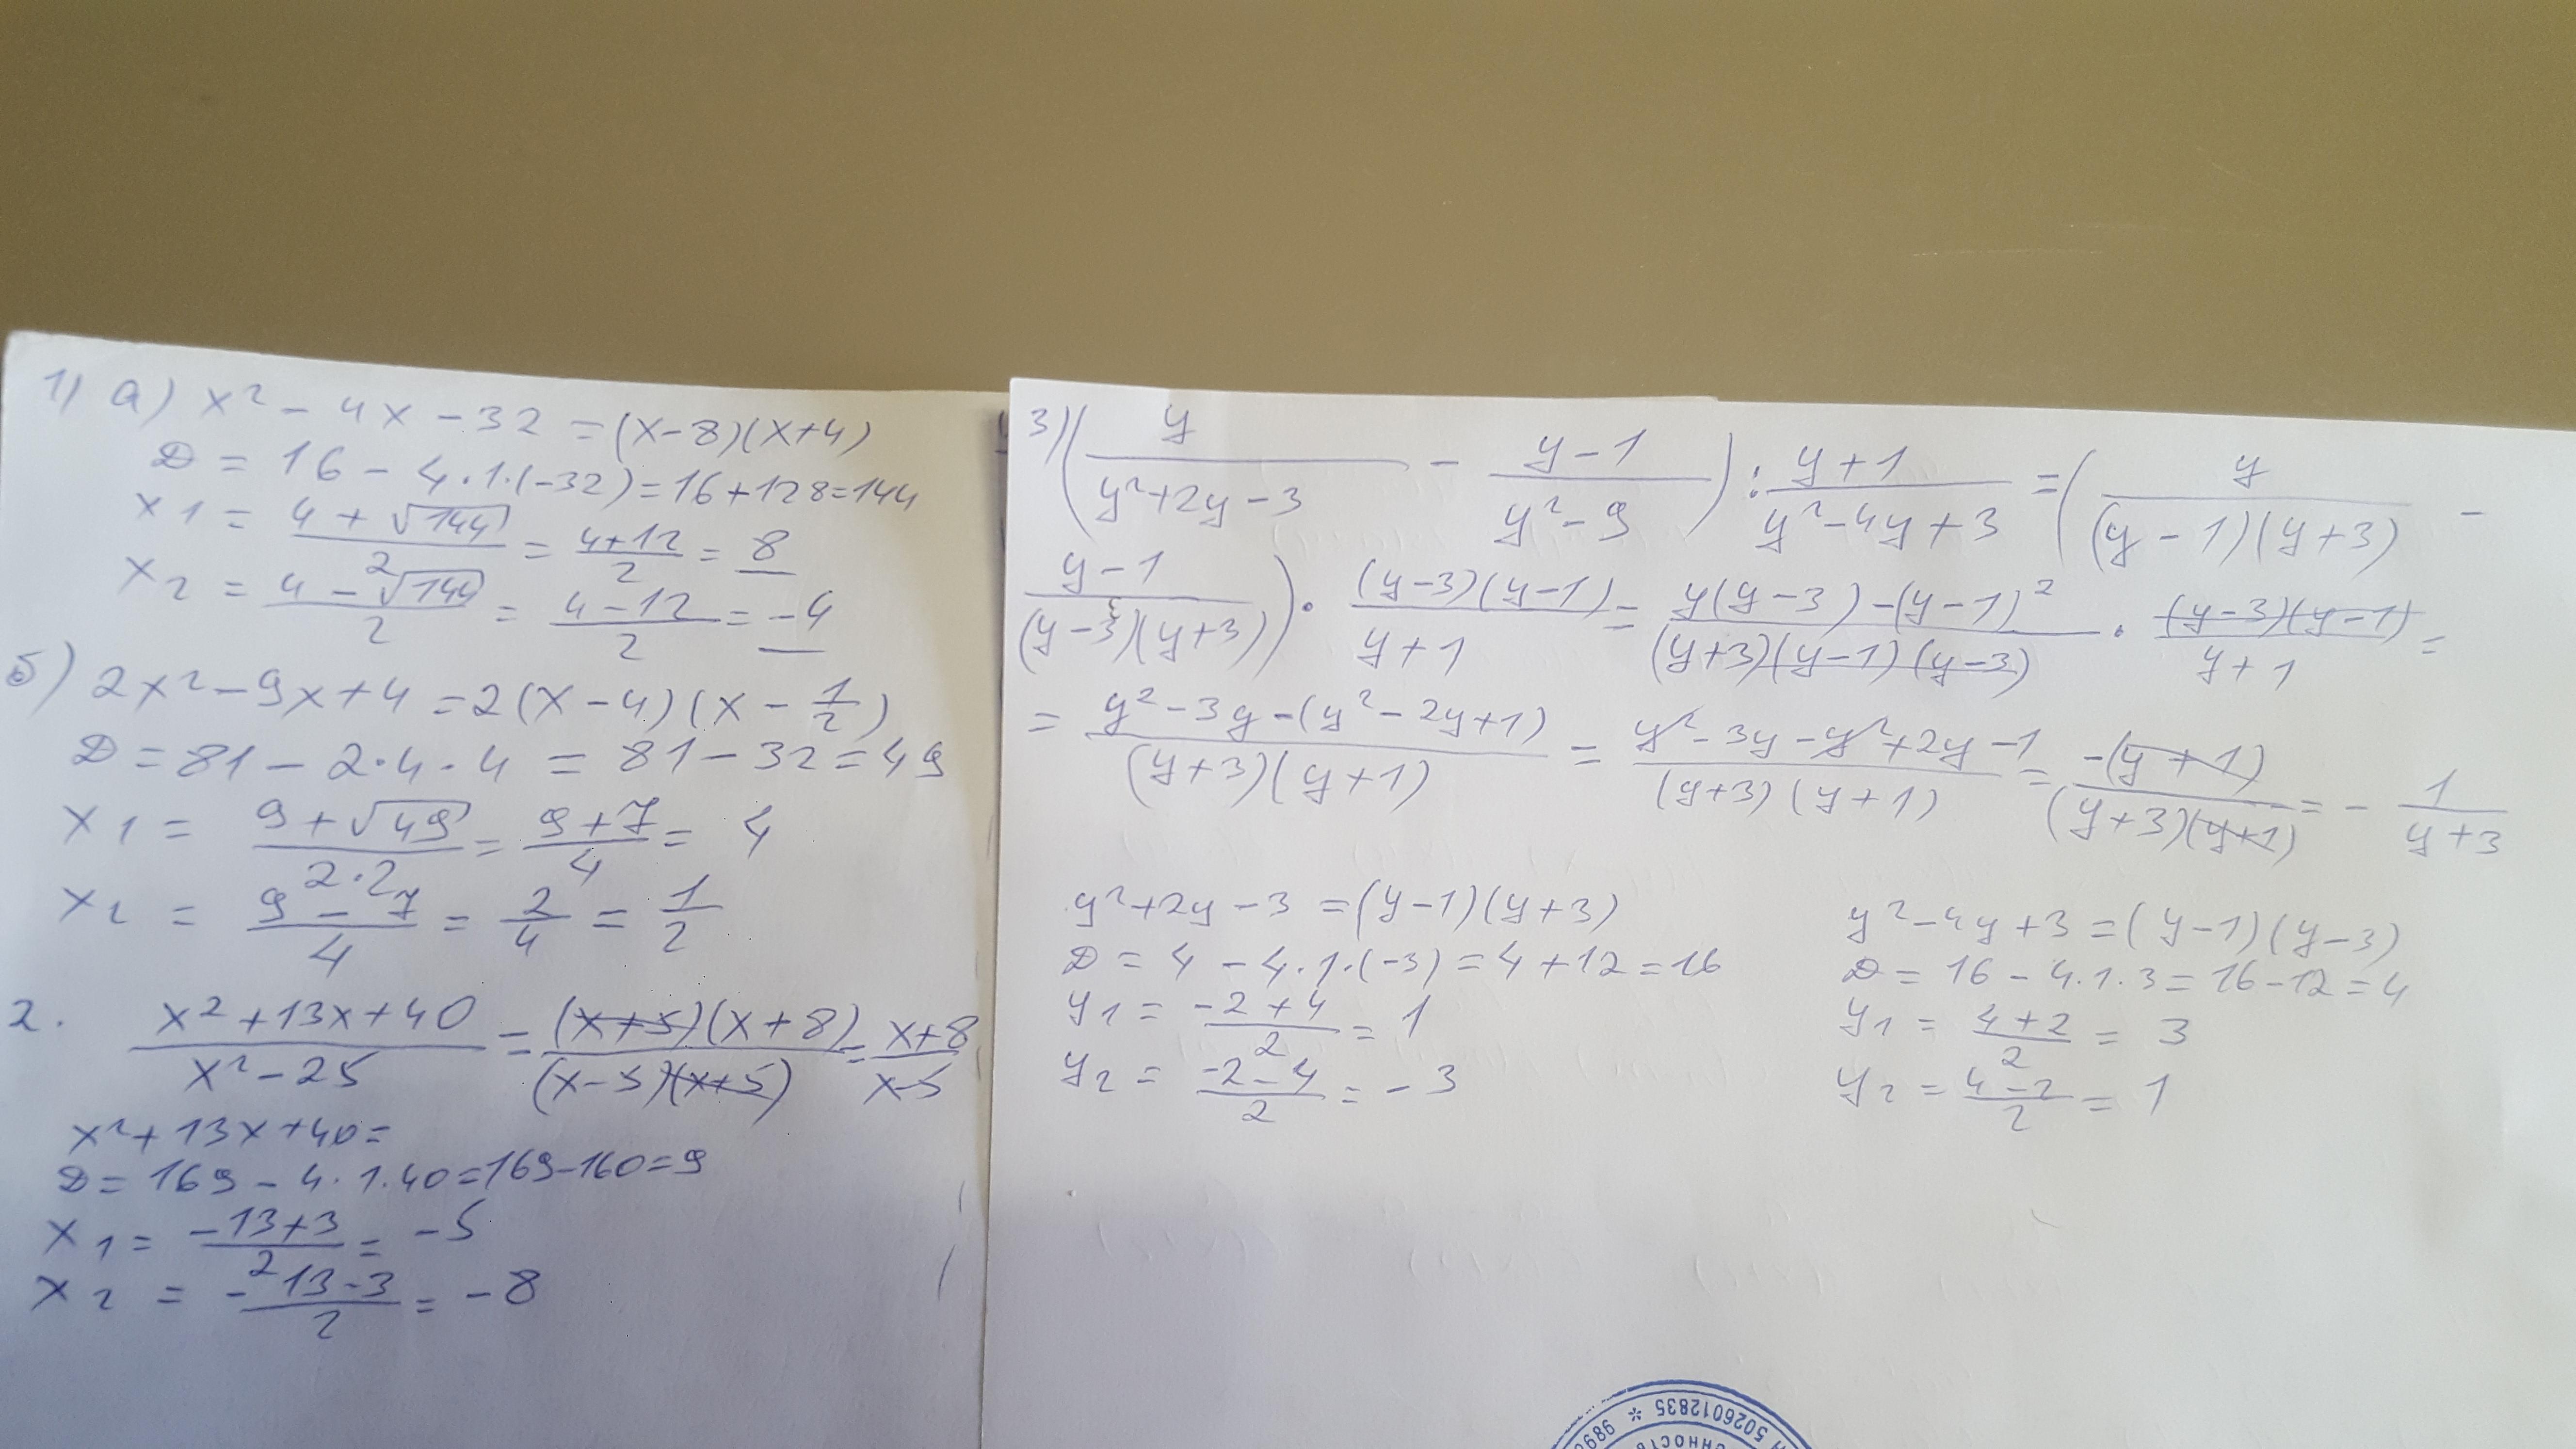 1) а) x² - 4x - 32 = (x-8)(x+4)
D = 16 - 4·1·(-32) = 16+128=144
x1 = (4 + √144)/2 = (4+12)/2 = 8
x2 = (4 - √144)/2 = (4-12)/2 = -4
б) 2x² - 9x + 4 = 2(x-4)(x - 1/2)
D = 81 - 2·4·4 = 81 - 32 = 49
x1 = (9+√49)/(2·2) = (9+7)/4 = 4
x2 = (9-7)/4 = 2/4 = 1/2
2. (x²+13x+40)/(x²-25) = ((x+5)(x+8))/((x-5)(x+5)) = (x+8)/(x-5)
x²+13x+40=
D = 169 - 4·1·40=169-160=9
x1 = (-13+3)/2 = -5
x2 = (-13-3)/2 = -8
3) (y/(y²+2y-3) - (y-1)/(y²-9)) : (y+1)/(y²-4y+3) = (y/((y-1)(y+3)) -
(y-1)/((y-3)(y+3))) · ((y-3)(y-1))/(y+1) = (y(y-3)-(y-1)²)/((y+3)(y-1)(y-3)) · ((y-3)(y-1))/(y+1) =
= (y²-3y-(y²-2y+1))/((y+3)(y+1)) = (y²-3y-y²+2y-1)/((y+3)(y+1)) = (-(y+1))/((y+3)(y+1)) = - 1/(y+3)
y²+2y-3 = (y-1)(y+3)
D = 4 - 4·1·(-3) = 4+12=16
y1 = (-2+4)/2 = 1
y2 = (-2-4)/2 = -3
y²-4y+3 = (y-1)(y-3)
D = 16 - 4·1·3 = 16-12=4
y1 = (4+2)/2 = 3
y2 = (4-2)/2 = 1
5026012835 *